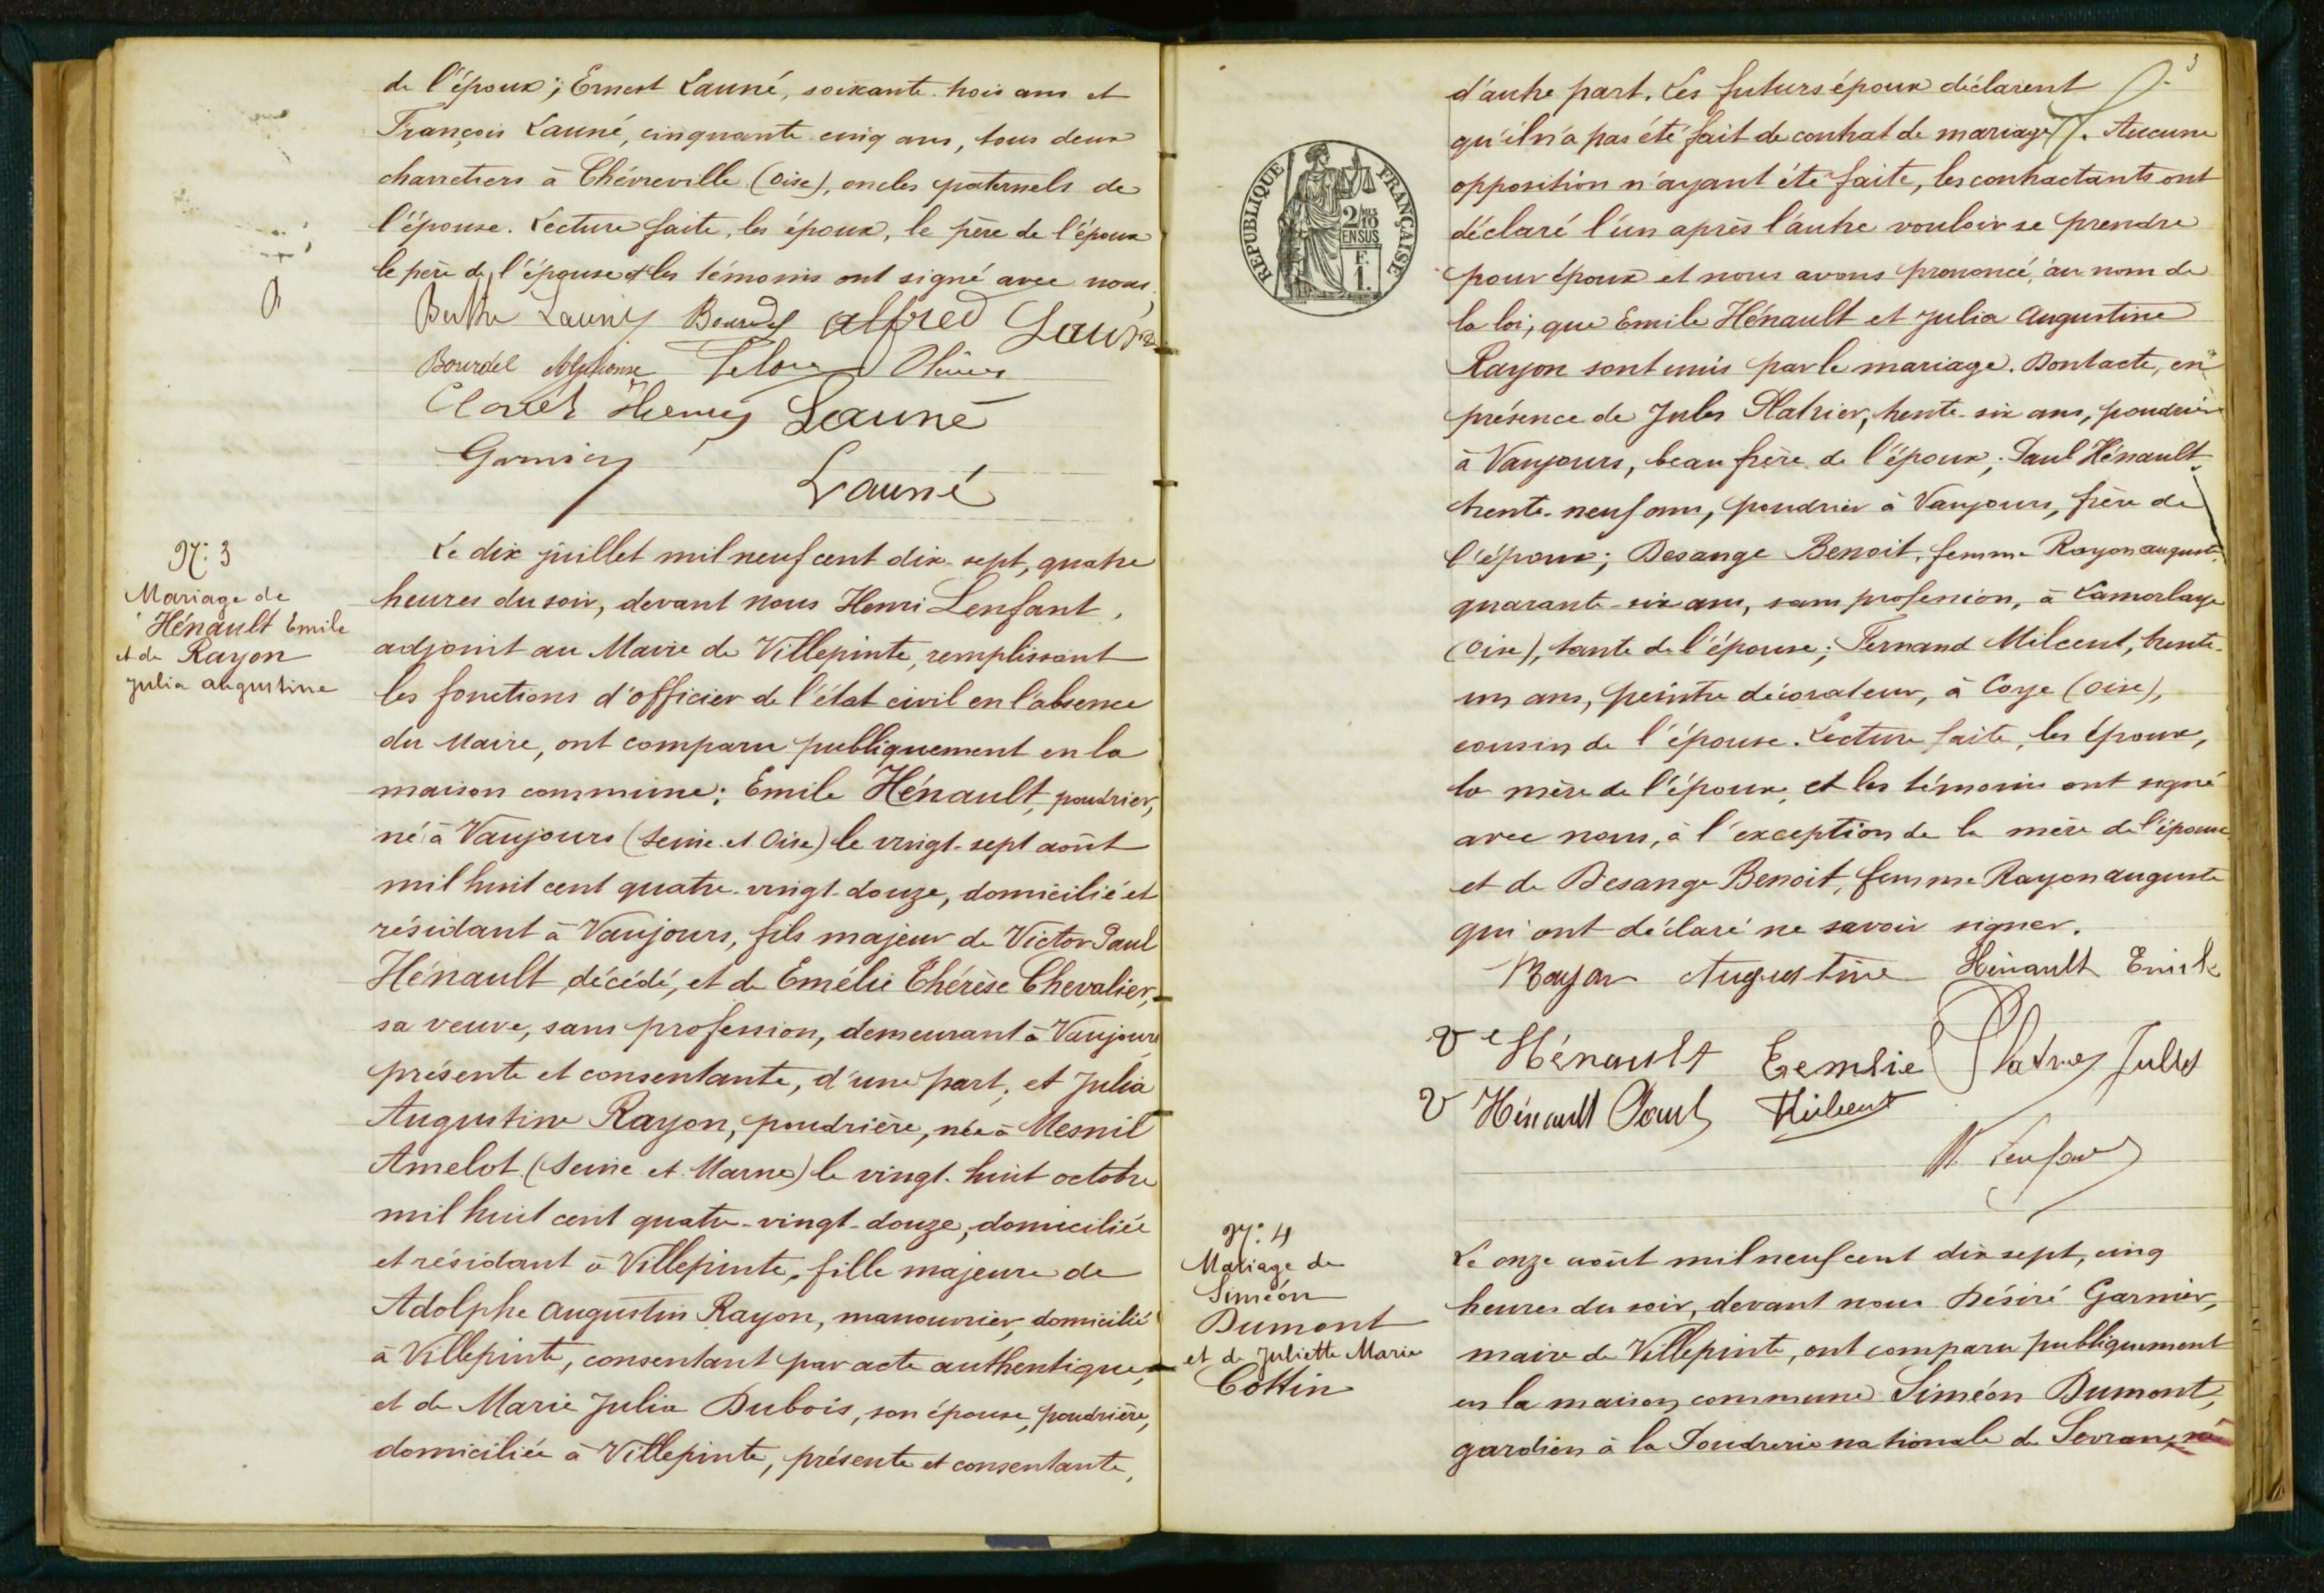 de l'époux; Ernest Launé, soixante-trois ans et
François Launé, cinquante-cinq ans, tous deux
charretiers à Chévreville (Oise), oncles paternels de
l'épouse. Lecture faite, les époux, le père de l'époux
le père de l'épouse et les témoins ont signé avec nous.
Berthe Launé Bourdel Alfred Launé
Bourdel Alphonse
Clouet Henry Launé
Garnier
Launé
N: 3
Mariage de
Hénault Emile
et de Rayon
Julia Augustine
Le dix juillet mil neuf cent dix-sept, quatre
heures du soir, devant nous Henri Lenfant,
adjoint au Maire de Villepinte, remplissant
les fonctions d'officier de l'état civil en l'absence
du Maire, ont comparu publiquement en la
maison commune: Emile Hénault, poudrier,
né à Vaujours (Seine et Oise) le vingt-sept août
mil huit cent quatre-vingt-douze, domicilié et
résidant à Vaujours, fils majeur de Victor Paul
Hénault, décédé, et de Emélie Thérèse Chevalier,
sa veuve, sans profession, demeurant à Vaujours
présente et consentante, d'une part; et Julia
Augustine Rayon, poudrière, née à Mesnil
Amelot (Seine et Marne) le vingt-huit octobre
mil huit cent quatre-vingt-douze, domiciliée
et résidant à Villepinte, fille majeure de
Adolphe Augustin Rayon, manouvrier, domicilié
à Villepinte, consentant par acte authentique,
et de Marie Julia Dubois, son épouse, poudrière,
domiciliée à Villepinte, présente et consentante,
3
d'autre part. Les futurs époux déclarent
qu'il n'a pas été fait de contrat de mariage. Aucune
opposition n'ayant été faite, les contractants ont
déclaré l'un après l'autre vouloir se prendre
pour époux et nous avons prononcé, au nom de
la loi, que Emile Hénault et Julia Augustine
Rayon sont unis par le mariage. Dont acte, en
présence de Jules Platrier, trente-six ans, poudrier
à Vaujours, beau frère de l'époux; Paul Hénault,
trente-neuf ans, poudrier à Vaujours, frère de
l'époux; Desange Benoit, femme Rayon Auguste,
quarante-six ans, sans profession, à Lamorlaye
(Oise), tante de l'épouse; Fernand Milcent, trente-
un ans, peintre décorateur, à Coye (Oise),
cousin de l'épouse. Lecture faite, les époux,
la mère de l'époux, et les témoins ont signé
avec nous, à l'exception de la mère de l'épouse
et de Desange Benoit, femme Rayon Auguste
qui ont déclaré ne savoir signer.
Rayon Augustine Hénault Emile
Ve Hénault Platrier Jules
V Hénault Paul Milcent
H. Lenfant
REPUBLIQUE FRANÇAISE
2/10
EN SUS
F.
1.
N: 4
Mariage de
Siméon
Dumont
et de Juliette Marie
Cottin
Le onze août mil neuf cent dix sept, cinq
heures du soir, devant nous Désiré Garnier,
maire de Villepinte, ont comparu publiquement
en la maison commune Siméon Dumont,
gardien à la Poudrerie nationale de Sevran, né